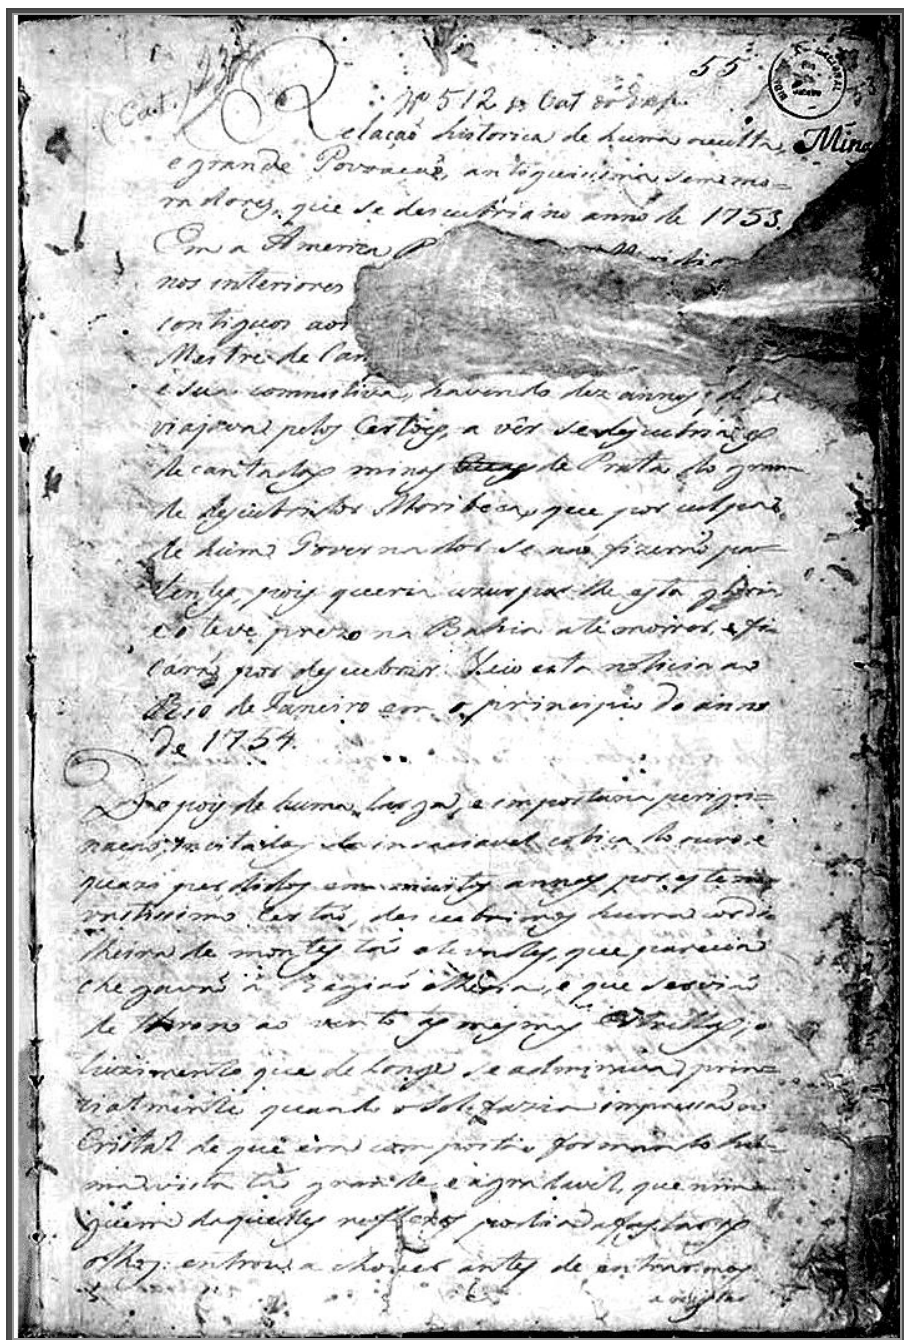 55
(Cat.) 23
Nº 512 do Cat. da Exp.
Relação historica de huma occulta,
Mina
e grande Povoação, antiguissima sem mo-
radores, que se descubriu no anno de 1753.
Em a America
nos interiores
contiguos aos
Mestre de Can
e sua comitiva, havendo dez annos, q̃
viajava pelos Certões, a vêr se descubria
decantadas minas de Prata do gran
de descubridor Moribeca, que por culpa
de hum Governador se não fizerão pa-
tentes, pois queria uzurpar lhe esta gloria
e o teve prezo na Bahia até morrer, e fi-
carão por descubrir. Veio esta noticia ao
Rio de Janeiro em o principio do anno
de 1754.
Depois de huma larga, e importuna perigri-
nação, incitados da insaciavel cobiça do ouro, e
quazi perdidos em muitos annos por este
vastissimo Certão, descubrimos huma cordi-
lheira de montes tão elevados, que parecia
chegavão á Região etheria, e que servião
de throno ao vento, ás mesmas Estrellas; o
luzimento que de longe se admirava, prin-
cipalmente quando o Sol fazia impressão no
Cristal de que era composta, formando hu-
ma vista tão grande, e agradavel, que nin-
guem daquelles reflexos podia afastar os
olhos: entrou a chover antes de entrarmos
a registar